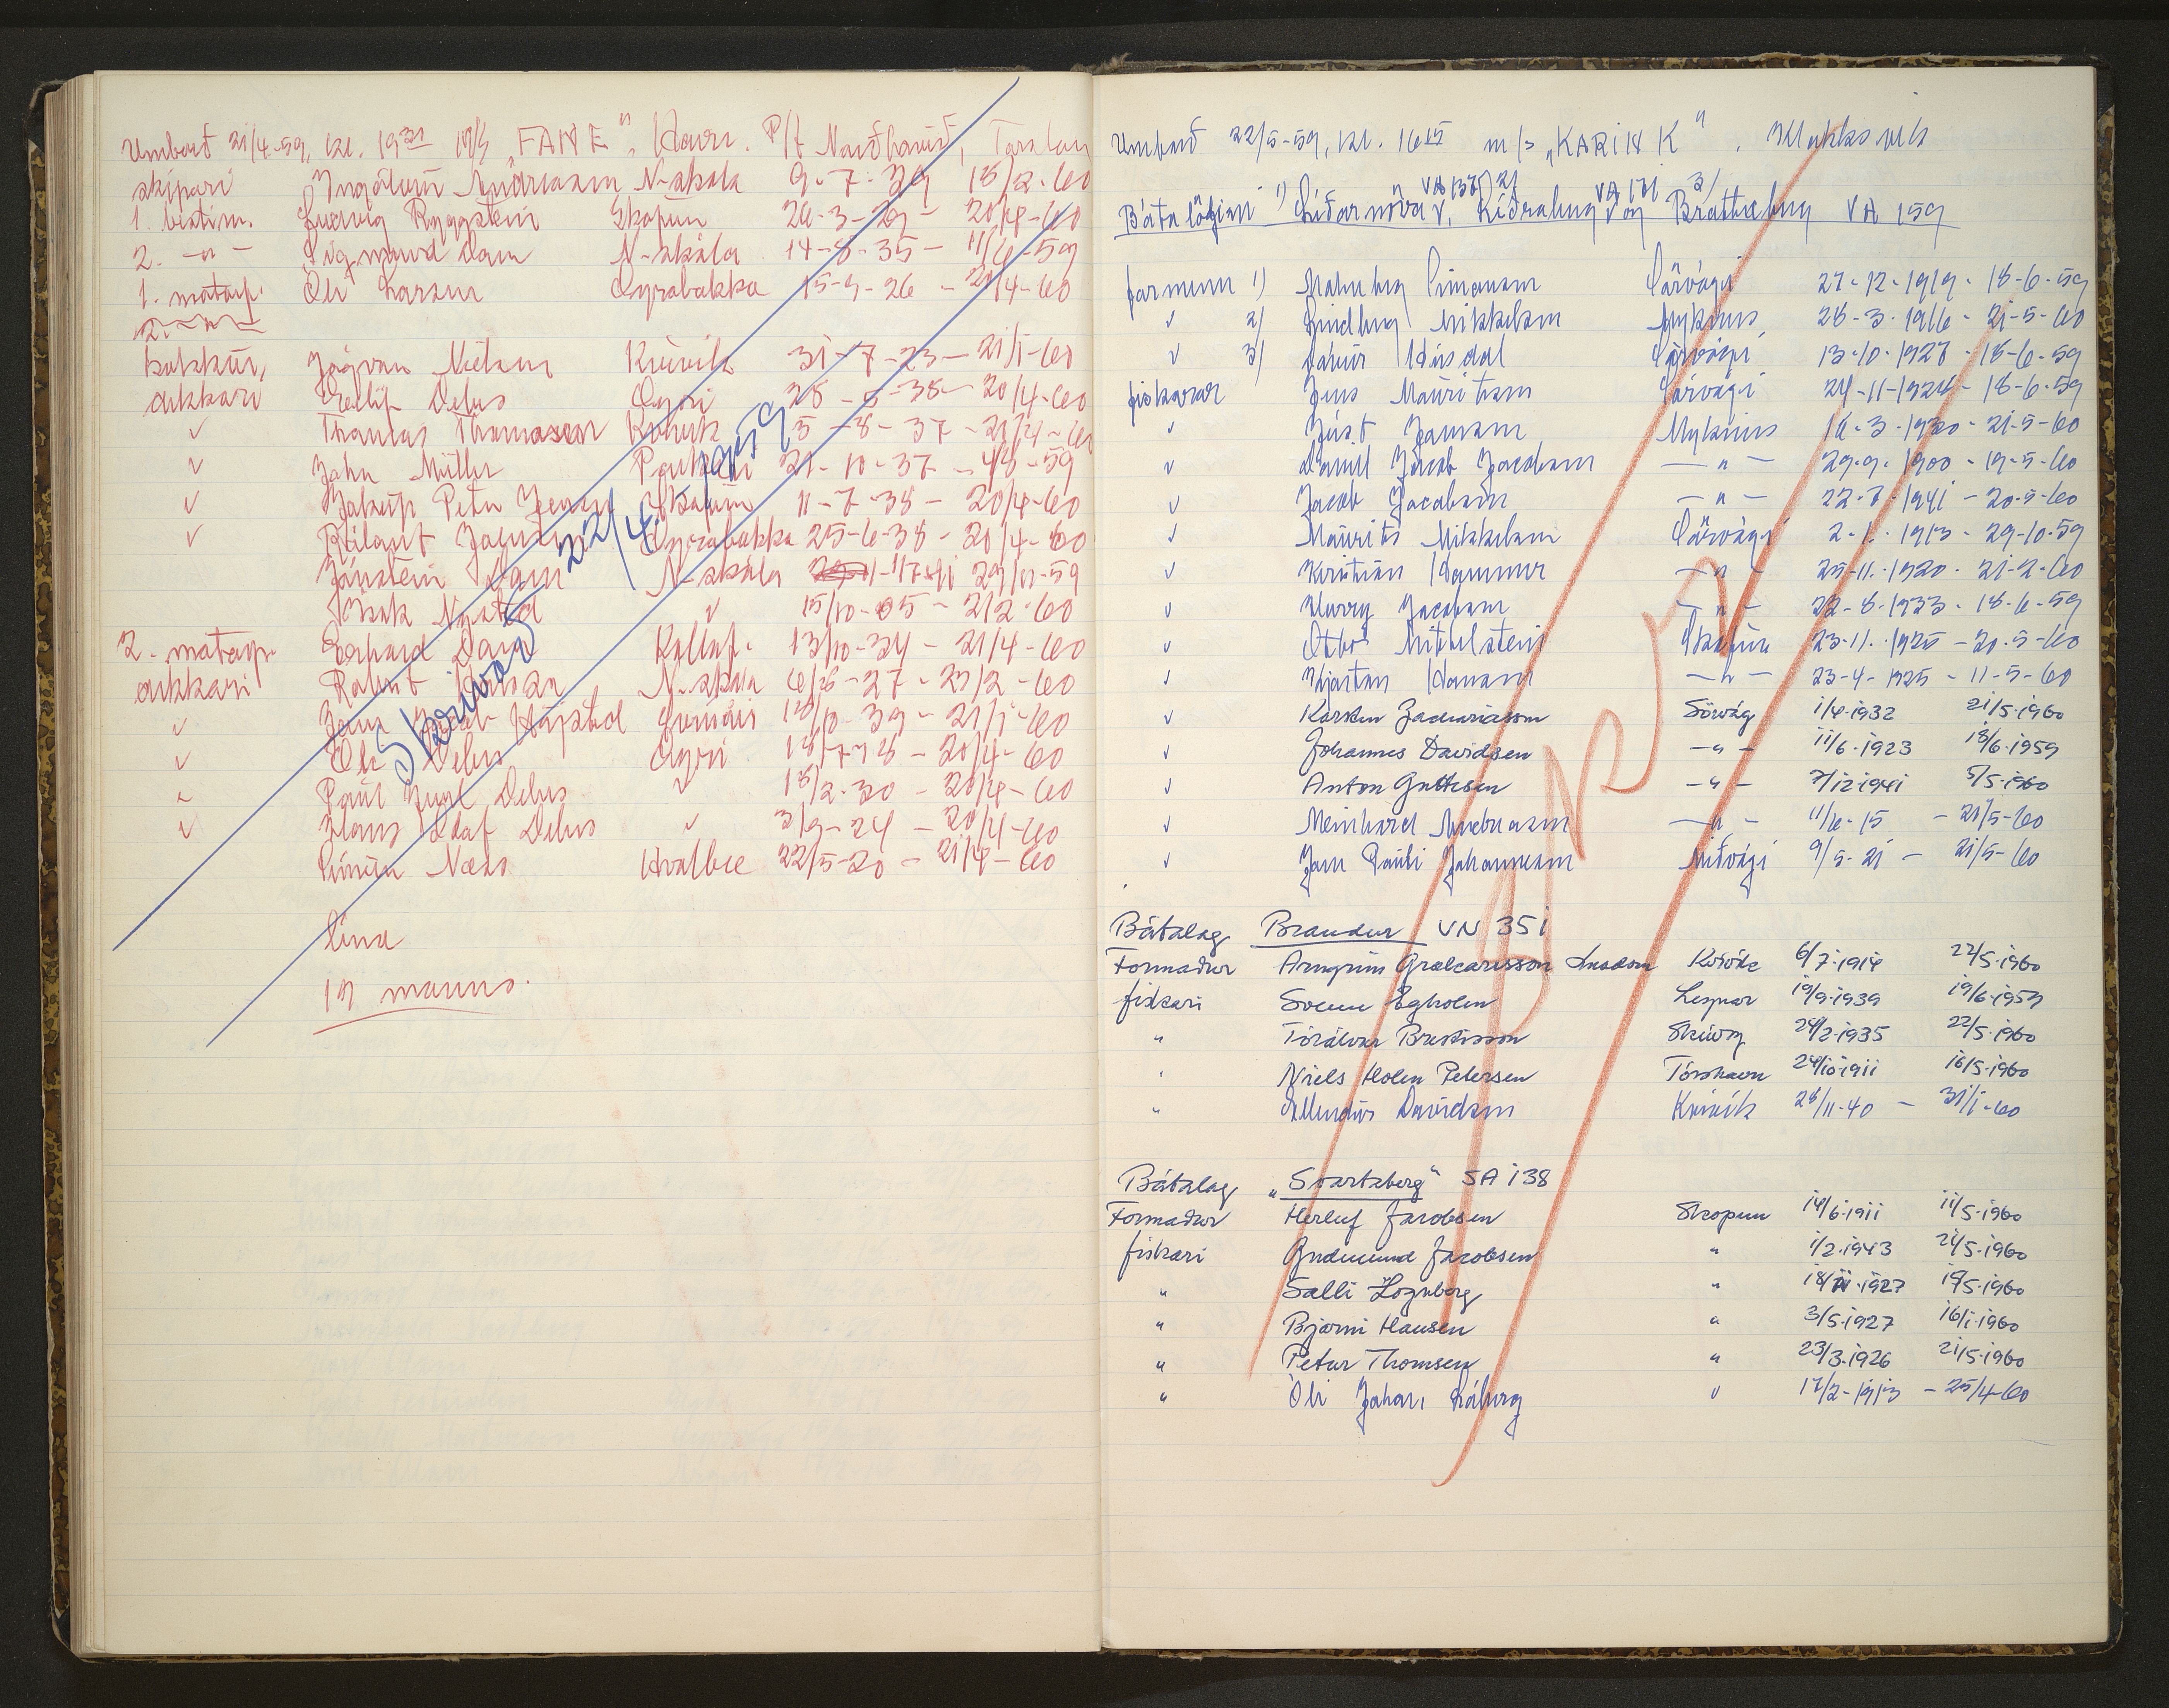 Umborð 21/4-59, kl. 19 M/S „FANE“, Havn.
skipari N-skála 9-7-39 18/2-60
1. bestim. Ludvig Ryggstein Skopun 26-3-29 - 20/4-60
2. -"- Sigmund Dam N-skála 14-8-35 - 11/6-59
1. matsp. Óli Larsen Oyrabakka 15-9-26 - 21/4-60
2. -"-
kokkur, Jógvan Nielsen Kvívík 31-7-23 - 21/1-60
dekkari Debes Oyri 28-5-38 - 20/4-60
v Thomas Thomassen 5-8-37 - 21/4-60
v John Müller 21-10-37 - 4/8-59
v Jákup Petur Jensen Skopun 11-7-38 - 20/4-60
v Róland Oyrabakka 25-6-38 - 20/4-60
Jónstein Dam N-skála 29/11-59
Ísak Nysted v 15/10-05 - 2/2-60
2. matsp. Erhard Dam Kollaf. 13/10-34 - 21/4-60
dekkari Robert N-skála 6/6-27 - 23/2-60
v Jens Højsted 10-39 - 21/1-60
v Óli Debes Oyri 18/7-18 - 20/4-60
v Poul Juul Debes v 18/2-30 - 20/4-60
v Hans Olaf Debes v 3/9-24 - 20/4-60
Símun Næss Hvalbæ 22/5-20 - 21/4-60
Skrivað 22/4-1959
lína
19 manns.
Umborð 22/5-59, kl. 1615 m/s „KARIN K“. Klakksvík
Bátalögini 1) VA 137, 2) VA 171 og 3) Brattaberg VA 159
formenn 1) Malmberg Simonsen Sörvági 27-12-1919 - 18-6-59
v 2) Lindberg Mikkelsen Mykines 28-3-1916 - 21-5-60
v 3) Húsdal Sörvági 13-10-1927 - 18-6-59
fiskarar Jens Mouritsen Sörvági 24-11-1928 - 18-6-59
v Júst Joensen Mykines 16-3-1930 - 21-5-60
v Daniel Jacob Jacobsen -"- 29-9-1900 - 19-5-60
v Jacob Jacobsen -"- 22-7-1941 - 20-5-60
v Maurits Mikkelsen Sörvági 2-1-1913 - 29-10-59
v Kristian Hammer -"- 25-11-1920 - 21-2-60
v Harry Jacobsen -"- 22-8-1933 - 18-6-59
v Otto Mittelstein Skopun 23-11-1925 - 20-5-60
v Kjartan Hansen -"- 23-4-1925 - 11-5-60
v Karsten Zachariassen Sörvág 1/4-1932 21/5-1960
v Johannes Davidsen -"- 11/6-1923 18/6-1959
v Anton Guttesen -"- 7/12-1941 5/5-1960
v Meinhard Andreasen -"- 11/6-15 - 21/5-60
v Jens Pauli Johannesen Miðvági 9/5-21 - 21/5-60
Bátalag Brandur VN 351
Formaður Arngrim Kvívík 6/7-1914 22/5-1960
fiskari Svenn Egholm Leynar 19/9-1939 19/6-1959
" Tórálvur Brestisson Skúvoy 24/2-1935 22/5-1960
" Niels Holm Petersen Tórshavn 24/10-1911 16/5-1960
" Davidsen Kvívík 28/11-40 - 31/1-60
Bátalag „Svartaberg“ SA 138
Formaður Herluf Jacobsen Skopun 14/6-1911 11/5-1960
fiskari Gudmund Jacobsen " 1/2-1943 21/5-1960
" Salli Høgnberg " 18/11-1927 19/5-1960
" Bjarni Hansen " 3/5-1927 16/1-1960
" Petur Thomsen " 23/3-1926 21/5-1960
" Óli Johan Káberg v 17/2-1913 - 25/4-60